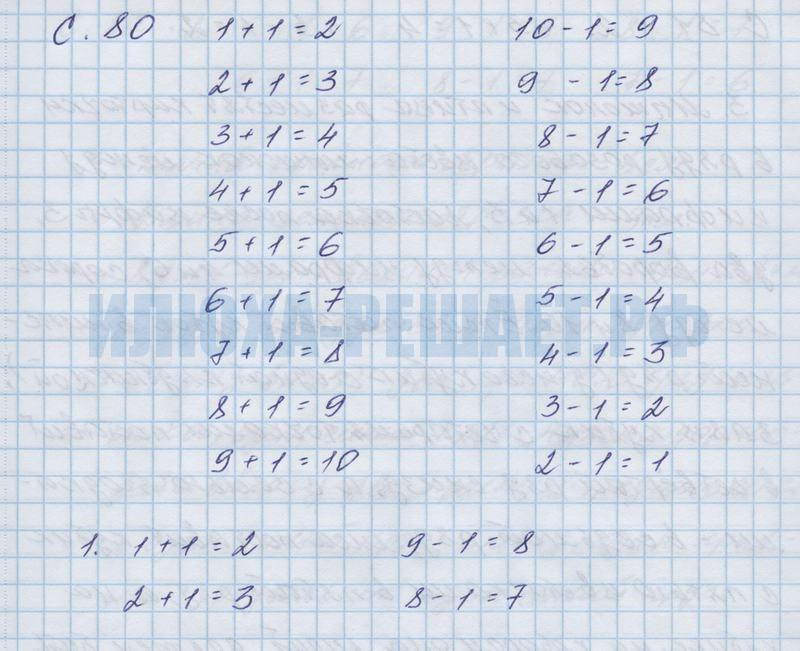 С. 80 1 + 1 = 2 10 - 1 = 9
2 + 1 = 3 9 - 1 = 8
3 + 1 = 4 8 - 1 = 7
4 + 1 = 5 7 - 1 = 6
5 + 1 = 6 6 - 1 = 5
6 + 1 = 7 5 - 1 = 4
ИЛЮХА-РЕШАЕТ.РФ
7 + 1 = 8 4 - 1 = 3
8 + 1 = 9 3 - 1 = 2
9 + 1 = 10 2 - 1 = 1
1. 1 + 1 = 2 9 - 1 = 8
2 + 1 = 3 8 - 1 = 7